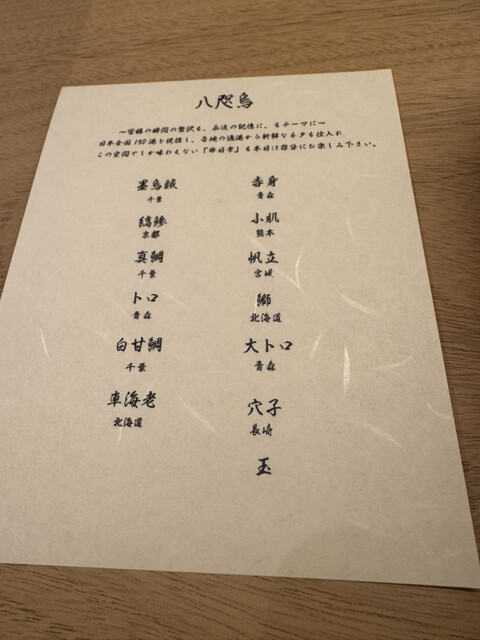 八咫烏
～皆様の瞬間の贅沢を、永遠の記憶に、をテーマに～
日本全国150港を提携し、各地の漁港から新鮮なネタを仕入れ
この空間でしか味わえない「非日常」を本日は存分にお楽しみ下さい。
墨烏賊
千葉
赤身
青森
縞鯵
京都
小肌
熊本
真鯛
千葉
帆立
宮城
トロ
青森
鰤
北海道
白甘鯛
千葉
大トロ
青森
車海老
北海道
穴子
長崎
玉